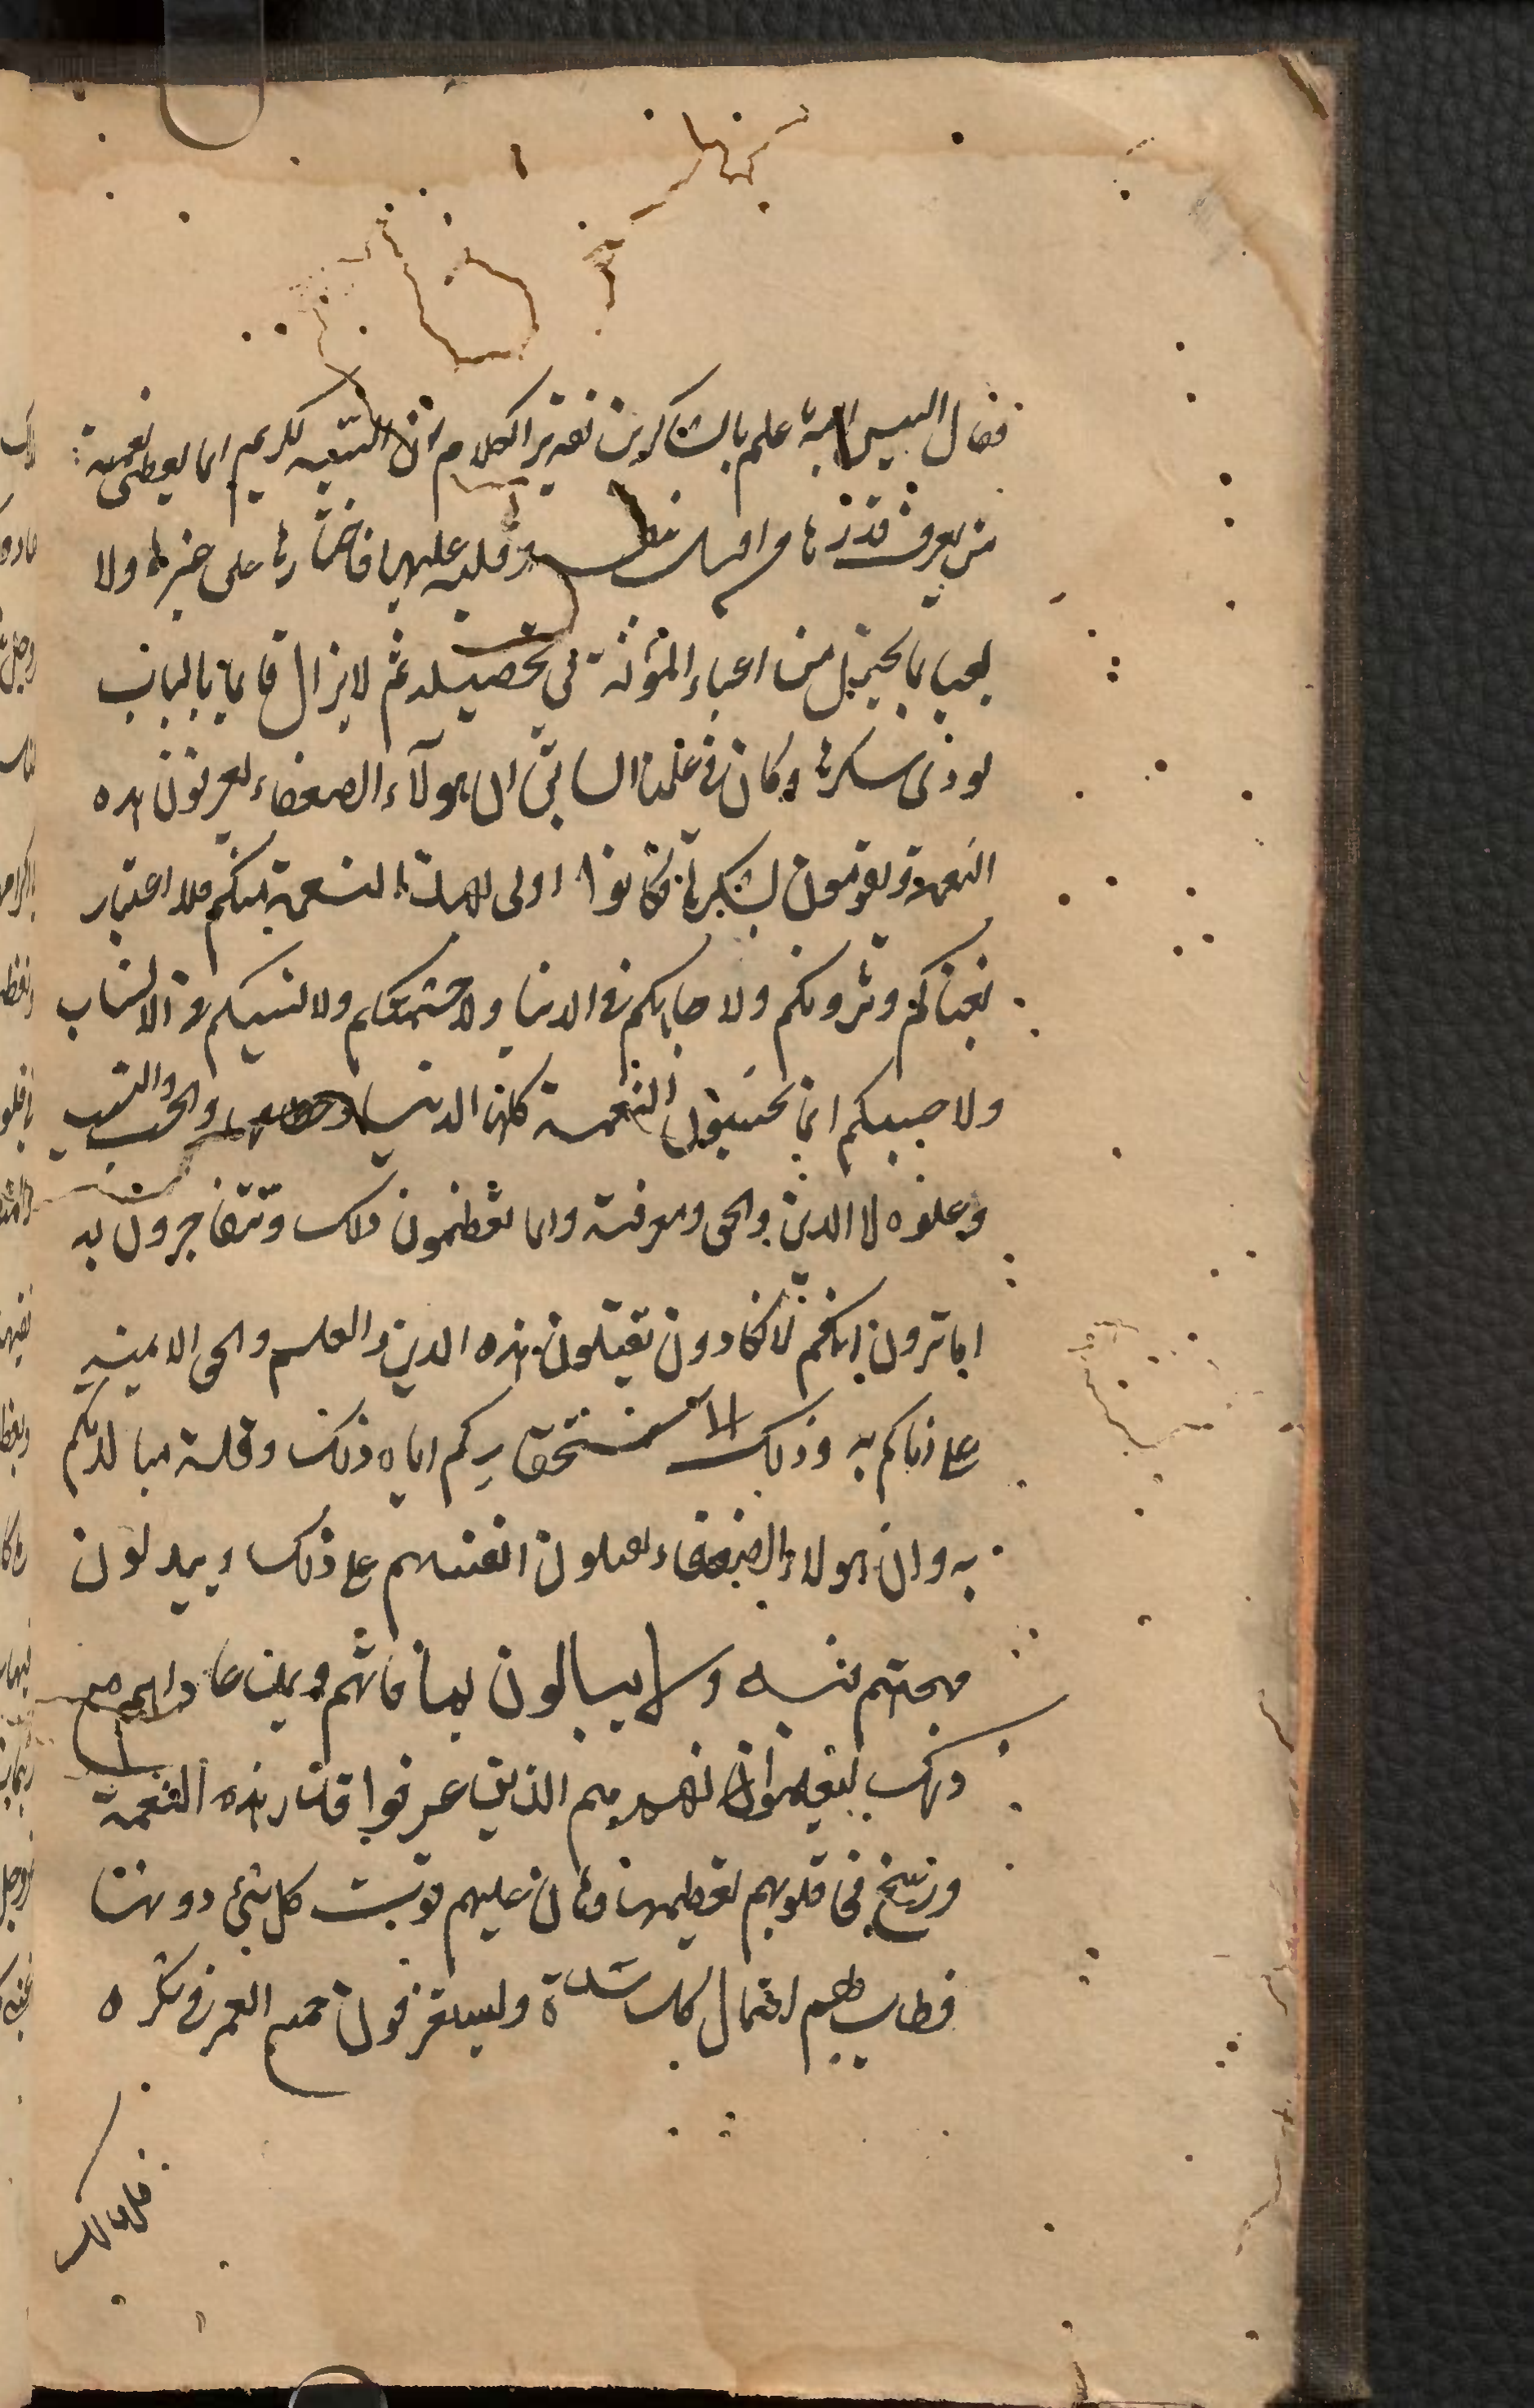 فقال اليس الله باعلم بالشاكرين تقدير الكلام ان السيد الكريم انما يعطى نعمة
من يعرف قدرها واقبل بنفسه وقلبه عليها فاختارها على غيرها ولا
يعبا بما يحتمل من اعباء المؤنة فى تحصيله ثم لا يزال قايما بالباب
يودى شكرها وكان فى علمنا السابق ان هولآء الضعفاء يعرفون هذه
النعمة ويقومون بشكرها فكانوا اولى بهذه النعمة منكم فلا اعتبار
بغناكم وثروتكم ولا جاهكم فى الدنيا ولا حشمتكم ولا نسبكم فى الانساب
ولا حسبكم انما تحسبون النعمة كلها الدنيا وحطامها والحسب والنسب
وعلوه لا الدين والحق ومعرفته وانما تعظمون ذلك وتتفاخرون به
اما ترون انكم لا تكادون تقبلون هذه الدين والعلم والحق الا منيه
على اتاكم به وذلك لاستحقاركم اياه ذلك وقلة مبالاتكم
به وان هولاء الضعفاء يقبلون انفسهم على ذلك ويبذلون
مهجتهم فيه ولا يبالون بما فاتهم وبمن عاداهم مع
ذلك ليعلموا انهم هم الذين عرفوا قدر هذه النعمة
ورسخ فى قلوبهم تعظيمها وهان عليهم فوت كل شئ دونها
فطاب لهم احتمال كل شدة وليستغرقون جميع العمر فى شكره
فلذلك